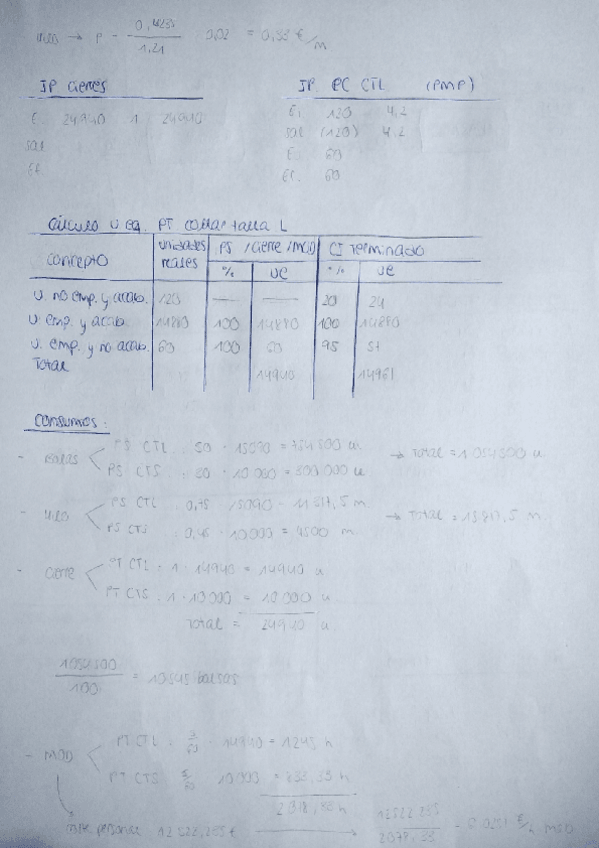 Hilo → P = 0,4235 / 1,21 · 0,02 = 0,35 €/m
IP cierres
IP PC CTL (PMP)
E. 24940 1 24940
Sal
Ef.
Ei 120 4,2
Sal (120) 4,2
E. 60
Ef. 60
Cálculo U eq. PT collar talla L
concepto unidades reales PS / cierre / MOD CI Terminado
% UE % UE
U. no emp. y acab. 120 — — 20 24
U. emp. y acab. 14880 100 14880 100 14880
U. emp. y no acab. 60 100 60 95 57
Total 14940 14961
Consumos:
PS CTL : 50 · 15090 = 754500 u.
PS CTS : 30 · 10000 = 300000 u.
→ Total = 1054500 u
- Hilo
PS CTL : 0,75 · 15090 = 11317,5 m
PS CTS : 0,45 · 10000 = 4500 m.
→ Total = 15817,5 m.
- Cierre
PT CTL : 1 · 14940 = 14940 u
PT CTS : 1 · 10000 = 10000 u
Total = 24940 u
1054500 / 100 = 10545 bolsas
- MOD
PT CTL : 5/60 · 14940 = 1245 h
PT CTS 5/60 10000 = 833,33 h
2078,33 h
personal 12522,235 €
→ 12522,235 / 2078,33 = €/h MOD